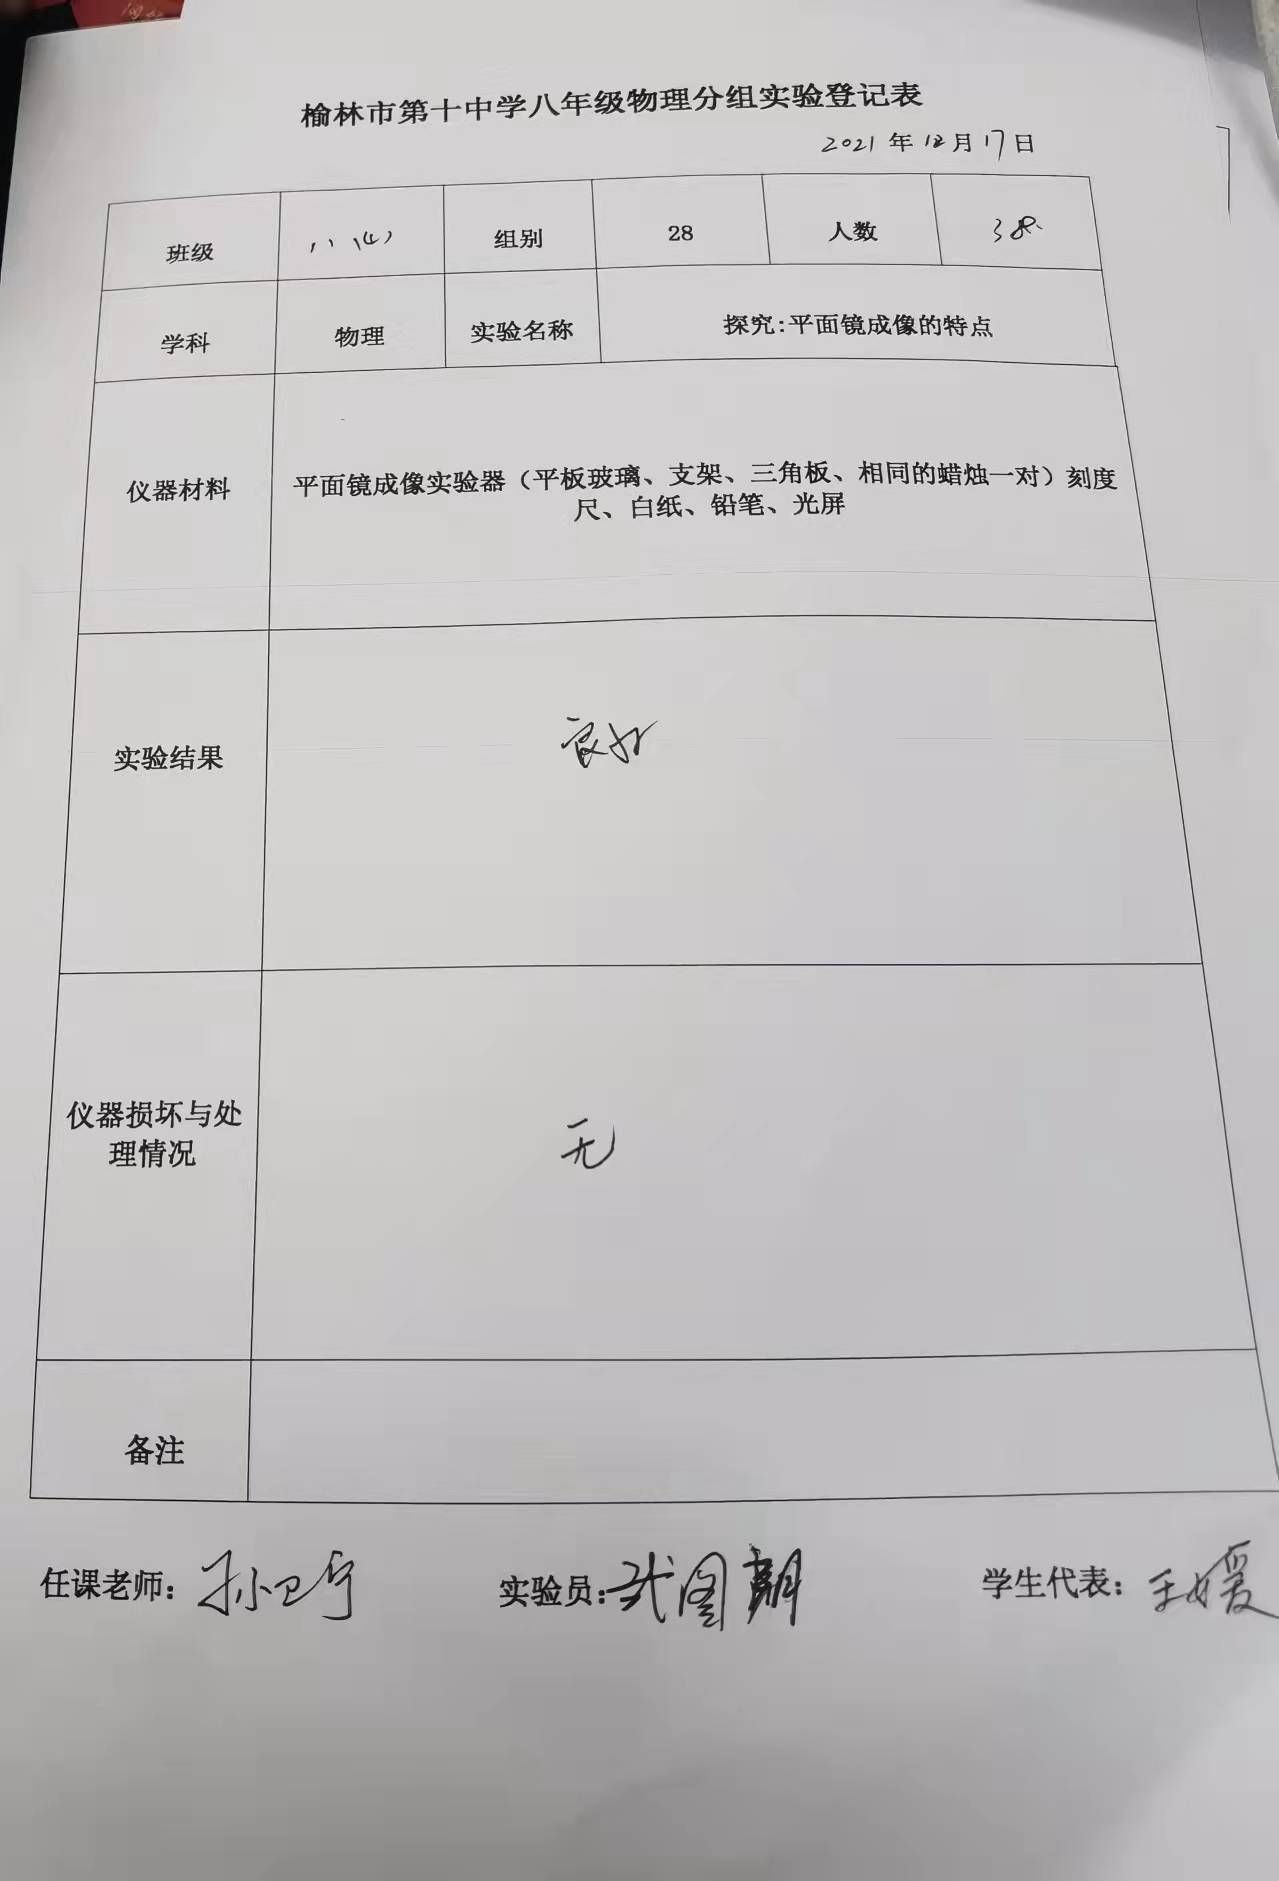 榆林市第十中学八年级物理分组实验登记表
2021 年 12 月 17 日
班级 八(4) 组别 28 人数 38
学科 物理 实验名称 探究:平面镜成像的特点
仪器材料 平面镜成像实验器（平板玻璃、支架、三角板、相同的蜡烛一对）刻度
尺、白纸、铅笔、光屏
实验结果 良好
仪器损坏与处
理情况
无
备注
任课老师: 实验员: 学生代表: 王媛